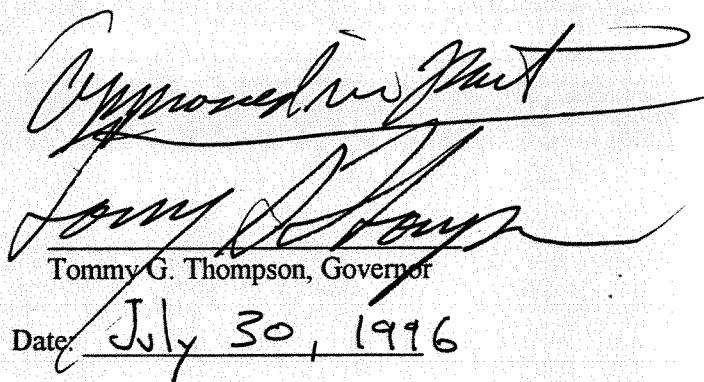 Approved in Part
Tommy G Thompson
Tommy G. Thompson, Governor
Date: July 30, 1996